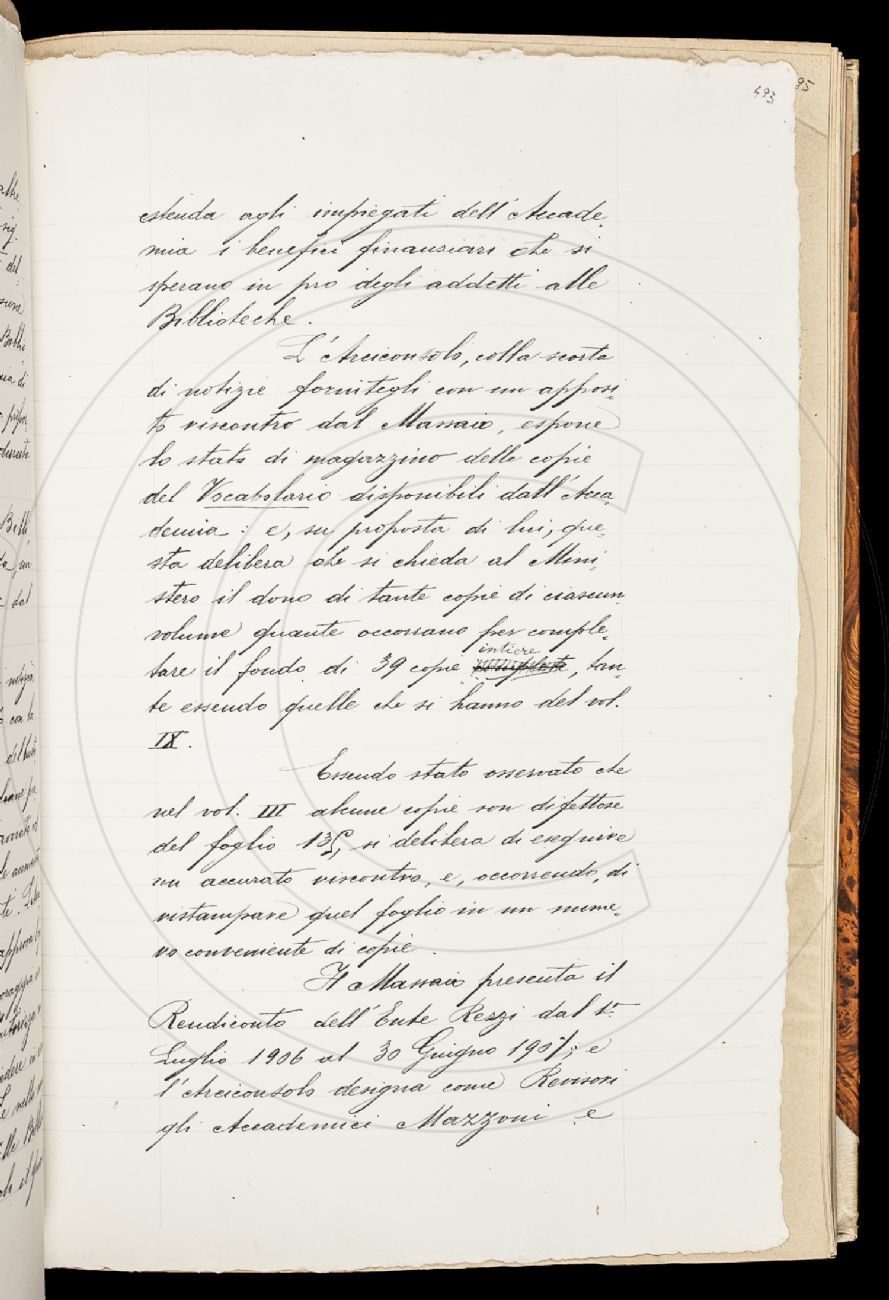 493
95
estenda agli impiegati dell'Accade-
mia i benefici finanziari che si
sperano in pro degli addetti alle
Biblioteche.
L'Arciconsolo, colla scorta
di notizie fornitegli con un apposi-
to riscontro dal Massaio, espone
lo stato di magazzino delle copie
del Vocabolario disponibili dall'Acca-
demia: e, su proposta di lui, que-
sta delibera che si chieda al Mini-
stero il dono di tante copie di ciascun
volume quante occorrano per comple-
tare il fondo di 39 copie complete intiere, tan-
te essendo quelle che si hanno del vol.
IX.
Essendo stato osservato che
nel vol. III alcune copie son difettose
del foglio 135, si delibera di eseguire
un accurato riscontro, e, occorrendo, di
ristampare quel foglio in un nume-
ro conveniente di copie.
Il Massaio presenta il
Rendiconto dell'Ente Rezzi dal 1º
Luglio 1906 al 30 Giugno 1907; e
l'Arciconsolo designa come Revisori
gli Accademici Mazzoni e